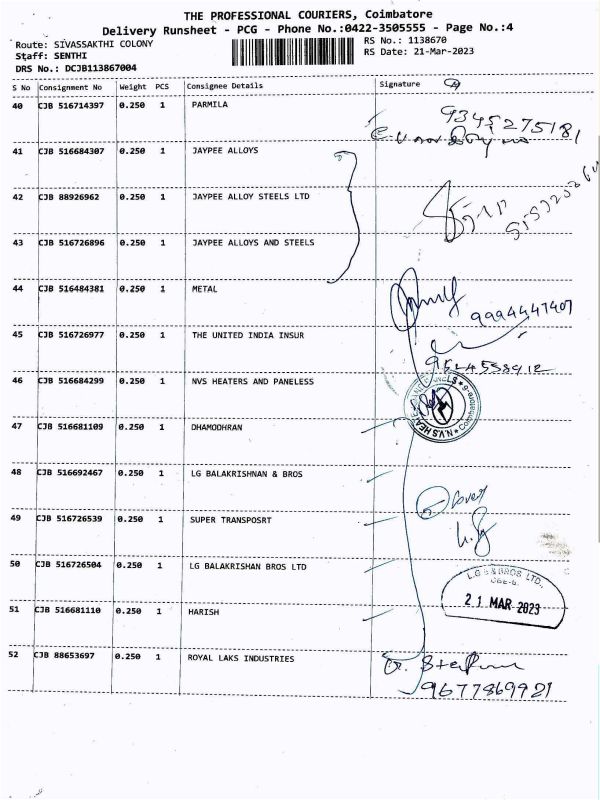 THE PROFESSIONAL COURIERS, Coimbatore
Delivery Runsheet - PCG - Phone No.:0422-3505555 - Page No.:4
Route: SIVASSAKTHI COLONY
RS No.: 1138670
Staff: SENTHI
RS Date: 21-Mar-2023
DRS No.: DCJB113867004
S No Consignment No Weight PCS Consignee Details Signature
40 CJB 516714397 0.250 1 PARMILA
9345275181
41 CJB 516684307 0.250 1 JAYPEE ALLOYS
42 CJB 88926962 0.250 1 JAYPEE ALLOY STEELS LTD
43 CJB 516726896 0.250 1 JAYPEE ALLOYS AND STEELS
44 CJB 516484381 0.250 1 METAL
9994447407
45 CJB 516726977 0.250 1 THE UNITED INDIA INSUR
46 CJB 516684299 0.250 1 NVS HEATERS AND PANELESS
47 CJB 516681109 0.250 1 DHAMODHRAN
48 CJB 516692467 0.250 1 LG BALAKRISHNAN & BROS
49 CJB 516726539 0.250 1 SUPER TRANSPOSRT
50 CJB 516726504 0.250 1 LG BALAKRISHAN BROS LTD
L.G.B & BROS LTD.,
CBE-6.
21 MAR 2023
51 CJB 516681110 0.250 1 HARISH
52 CJB 88653697 0.250 1 ROYAL LAKS INDUSTRIES
9677869921